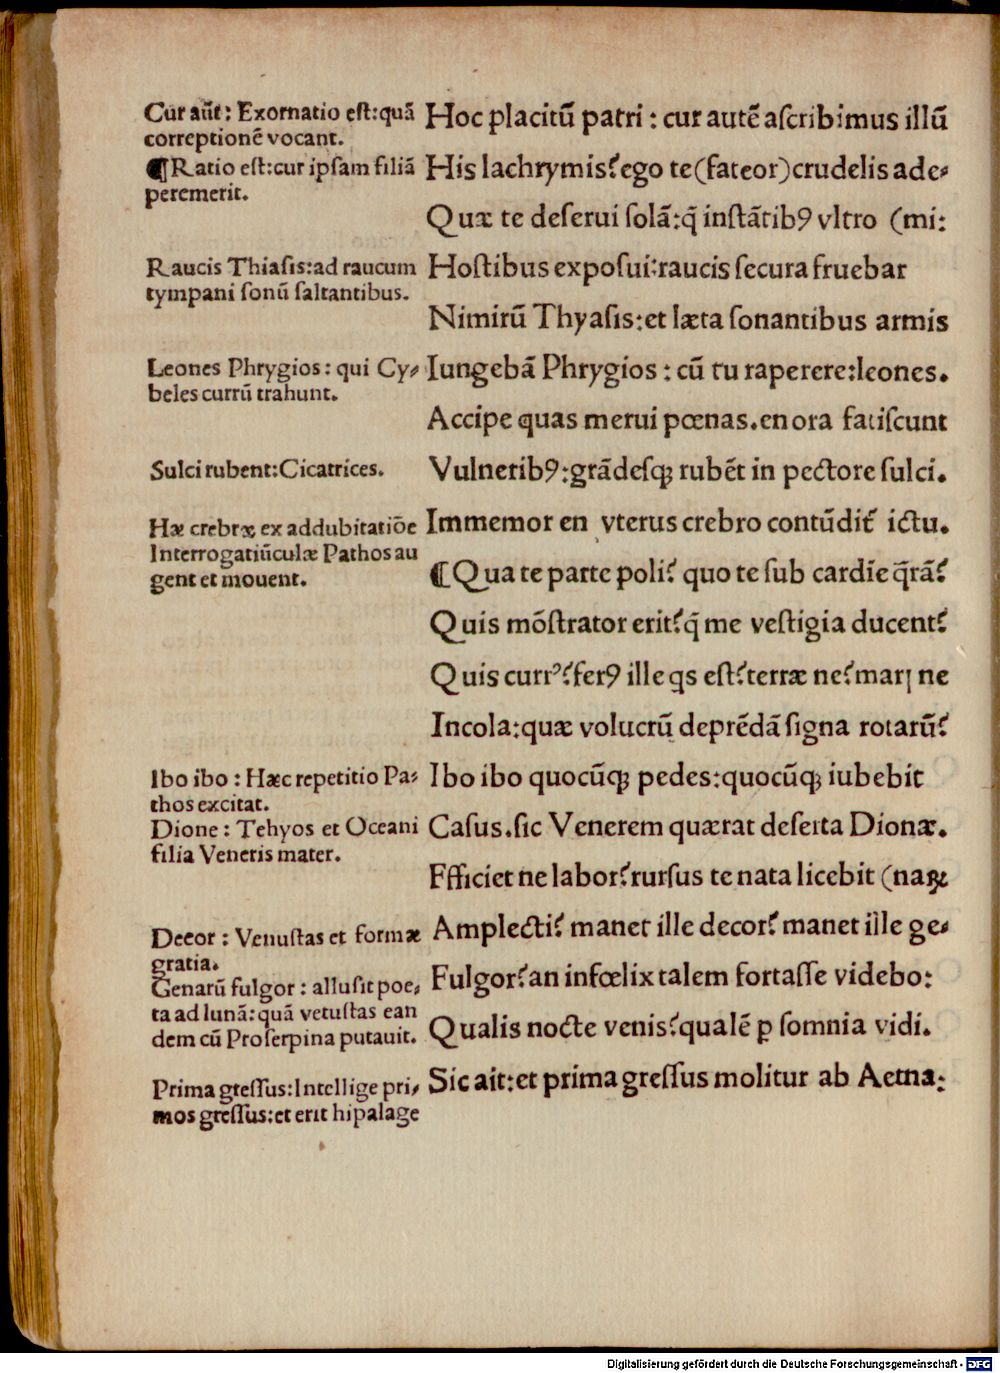 Cur aūt: Exornatio est:quā
correptionē vocant.
¶Ratio est:cur ipsam filiā
peremerit.
Raucis Thiasis:ad raucum
tympani sonū saltantibus.
Leones Phrygios: qui Cy⸗
beles currū trahunt.
Sulci rubent:Cicatrices.
Hæ crebræ ex addubitatiōe
Interrogatiūculæ Pathos au
gent et mouent.
Ibo ibo: Hæc repetitio Pa⸗
thos excitat.
Dione: Tehyos et Oceani
filia Veneris mater.
Decor: Venustas et formæ
gratia.
Genarū fulgor: allusit poe⸗
ta ad lunā:quā vetustas ean
dem cū Proserpina putauit.
Prima gressus:Intellige pri⸗
mos gressus:et erit hipalage
Hoc placitū patri: cur autē ascribimus illū
His lachrymis?ego te(fateor)crudelis ade⸗
Quæ te deserui solā:q̄ instātibꝰ vltro (mi:
Hostibus exposui:raucis secura fruebar
Nimirū Thyasis:et læta sonantibus armis
Iungebā Phrygios: cū tu raperere:leones.
Accipe quas merui pœnas.en ora fatiscunt
Vulneribꝰ:grādesqꝫ rubēt in pectore sulci.
Immemor en vterus crebro contūdit᷑ ictu.
¶Qua te parte poli? quo te sub cardīe q̄rā?
Quis mōstrator erit?q̄ me vestigia ducent?
Quis currꝰ?ferꝰ ille qs est?terræ ne?marı ne
Incola:quæ volucrū deprēdā signa rotarū?
Ibo ibo quocūqꝫ pedes:quocūqꝫ iubebit
Casus.sic Venerem quærat deserta Dionæ.
Efficiet ne labor?rursus te nata licebit (naꝝ
Amplecti? manet ille decor? manet ille ge⸗
Fulgor?an infœlix talem fortasse videbo:
Qualis nocte venis?qualē ꝑ somnia vidi.
Sic ait:et prima gressus molitur ab Aetna:
Digitalisierung gefördert durch die Deutsche Forschungsgemeinschaft - DFG